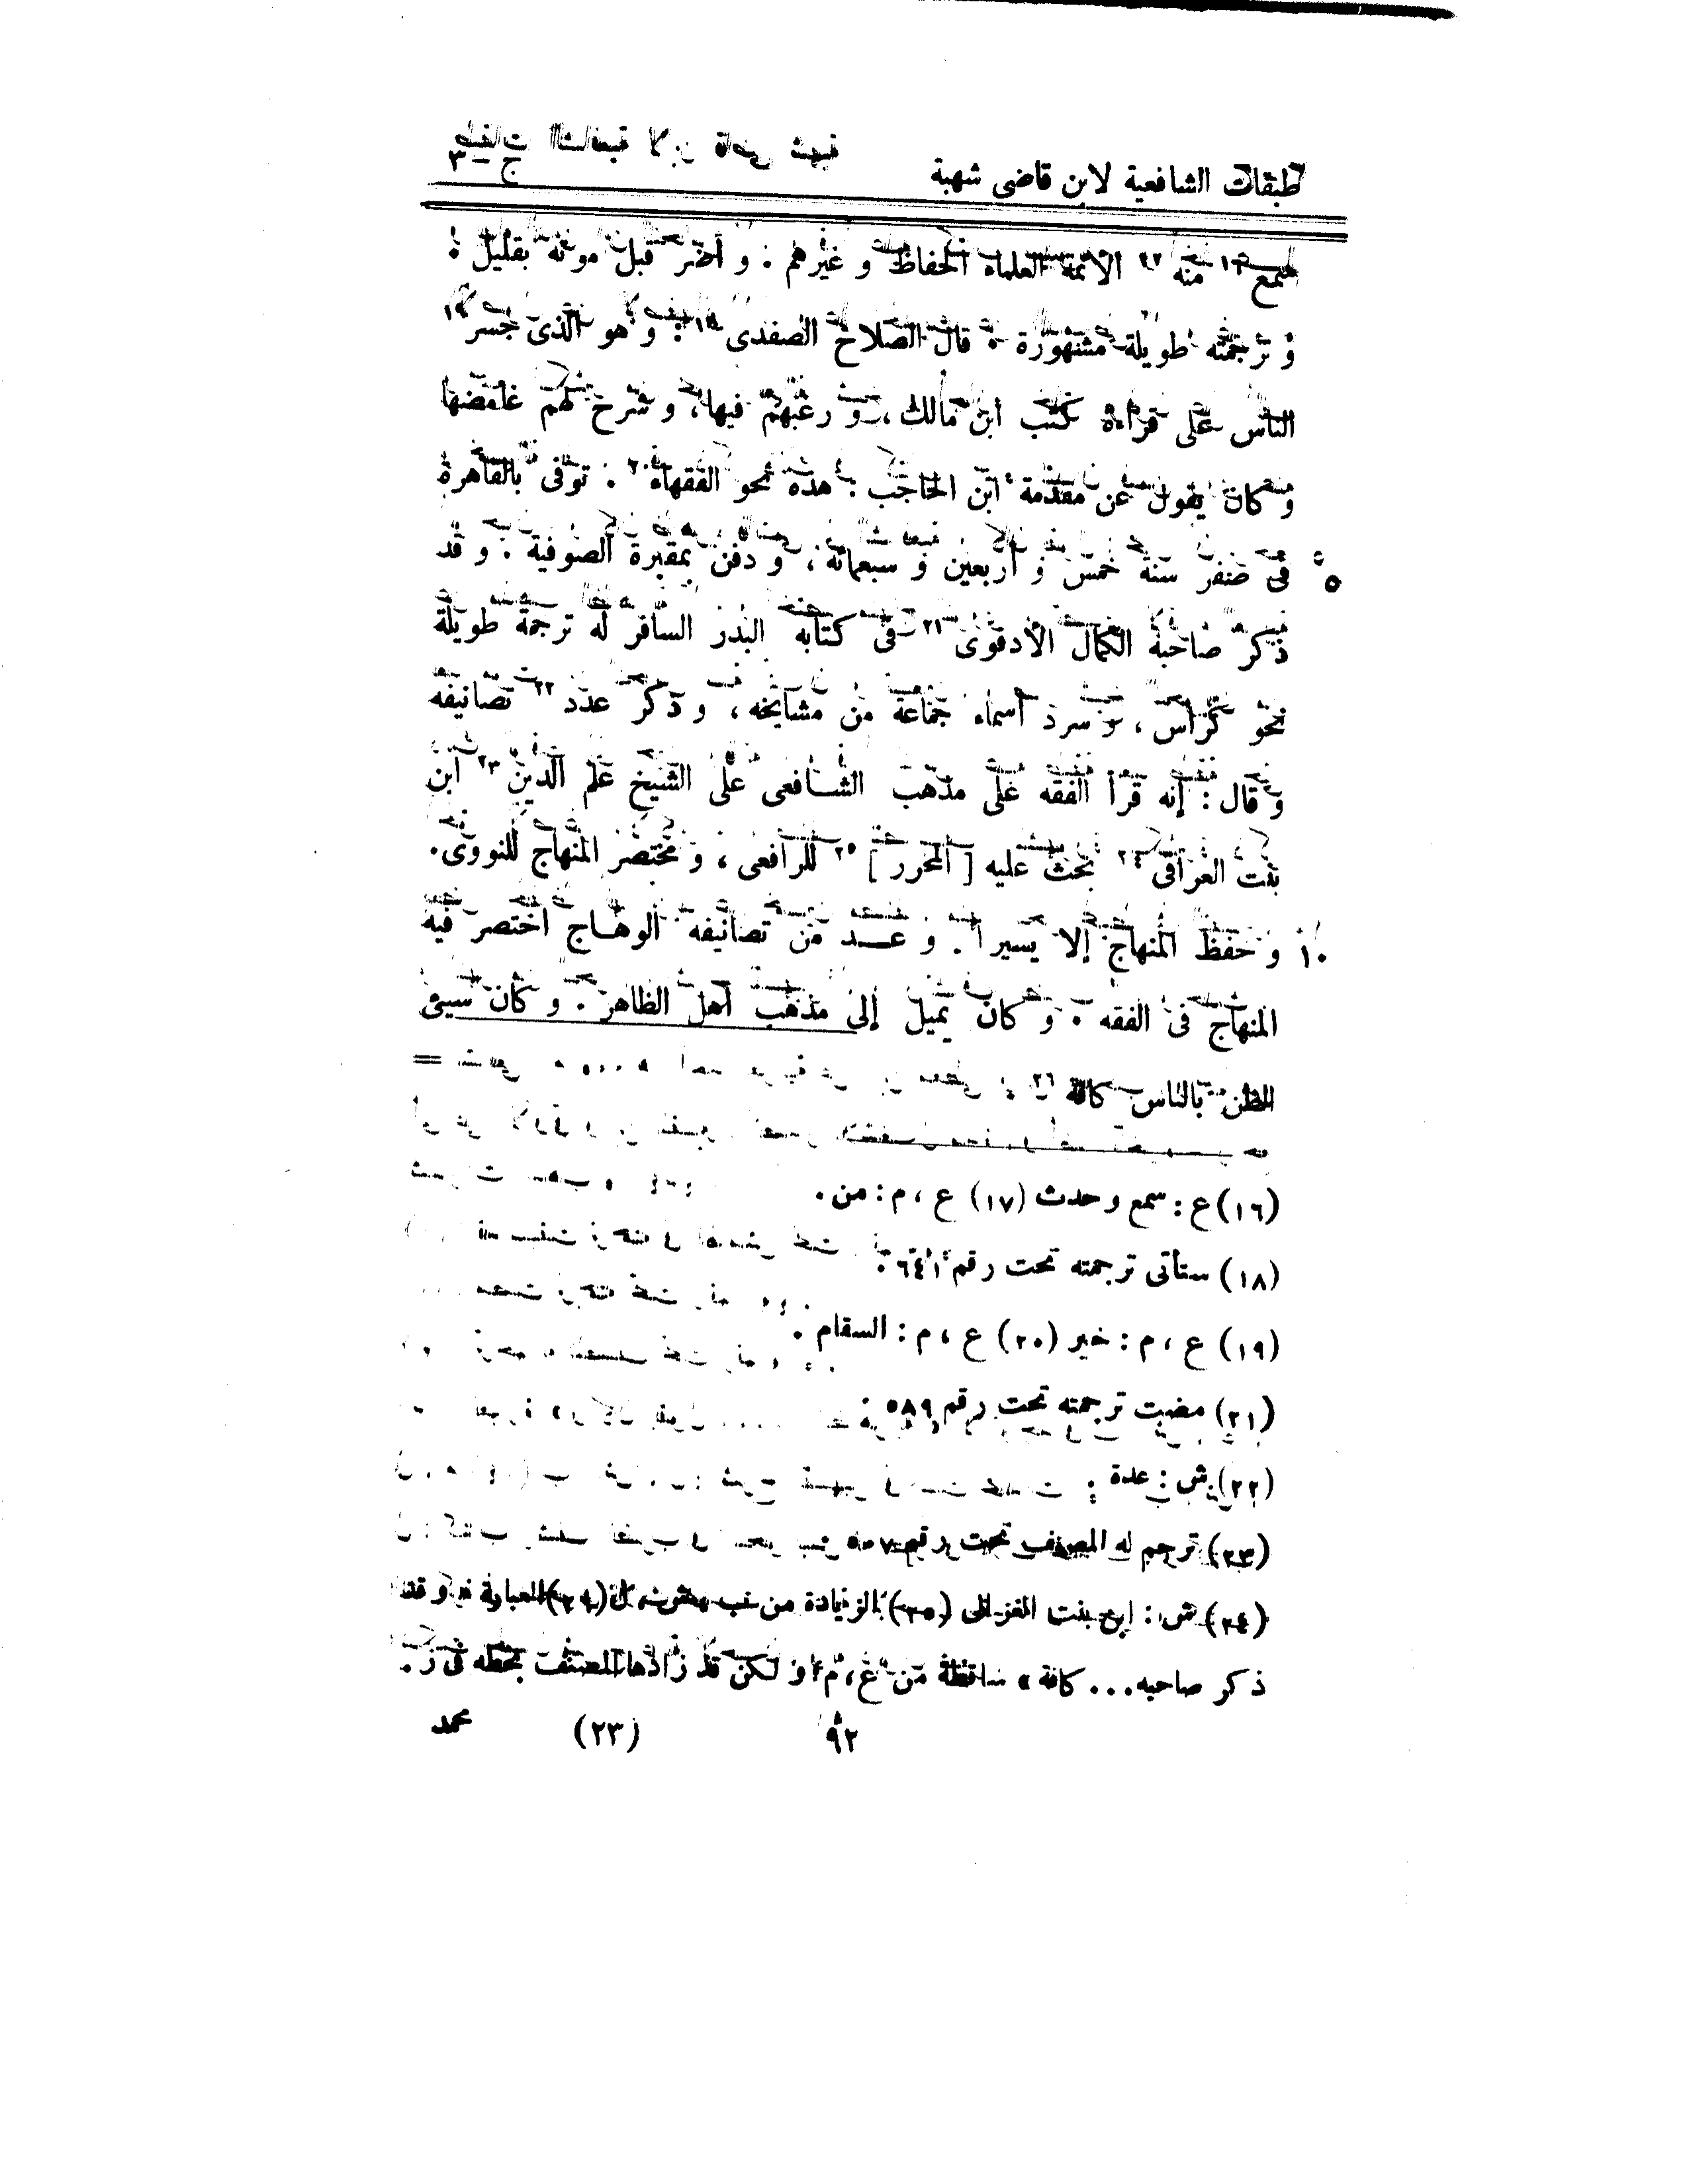 طبقات الشافعية لابن قاضى شهبة ج - ٣
سمع١٦ منه١٧ الأئمة العلماء الحفاظ و غيرهم . و أضر قبل موته بقليل .
و ترجمته طويلة مشهورة . قال الصلاح الصفدى١٨ : و هو الذى جسر١٩
الناس على قراءة كتب ابن مالك ، و رغبهم فيها ، و شرح لهم غامضها
و كان يقول عن مقدمة ابن الحاجب : هذه نحو الفقهاء٢٠ . توفى بالقاهرة
٥ فى صفر سنة خمس و أربعين و سبعمائة ، و دفن بمقبرة الصوفية . و قد
ذكر صاحبه الكمال الأدفوى٢١ فى كتابه البدر السافر له ترجمة طويلة
نحو كراس ، و سرد أسماء جماعة من مشايخه ، و ذكر عدد٢٢ تصانيفه
و قال : إنه قرأ الفقه على مذهب الشافعى على الشيخ علم الدين٢٣ ابن
بنت العراقى٢٤ بحث عليه [ المحرر ]٢٥ للرافعى ، و مختصر المنهاج للنووى .
١٠ و حفظ المنهاج إلا يسيرا . و عد من تصانيفه الوهاج اختصر فيه
المنهاج فى الفقه . و كان يميل إلى مذهب أهل الظاهر . و كان سيئ
الظن بالناس كافة٢٦
(١٦) ع : سمع و حدث (١٧) ع ، م : من .
(١٨) ستأتى ترجمته تحت رقم ٦٤١ .
(١٩) ع ، م : خير (٢٠) ع ، م : السقام .
(٢١) مضت ترجمته تحت رقم ٥٨٩ .
(٢٢) ش : عدة
(٢٣) ترجم له المصنف تحت رقم
(٢٤) ش : ابن بنت المغزالى (٢٥) الزيادة من (٢٦) العبارة « و قد
ذكر صاحبه ... كافة » ساقطة من ع ، م ، و لكن قد زادها المصنف بخطه فى ز .
٩٢ (٢٣) محمد